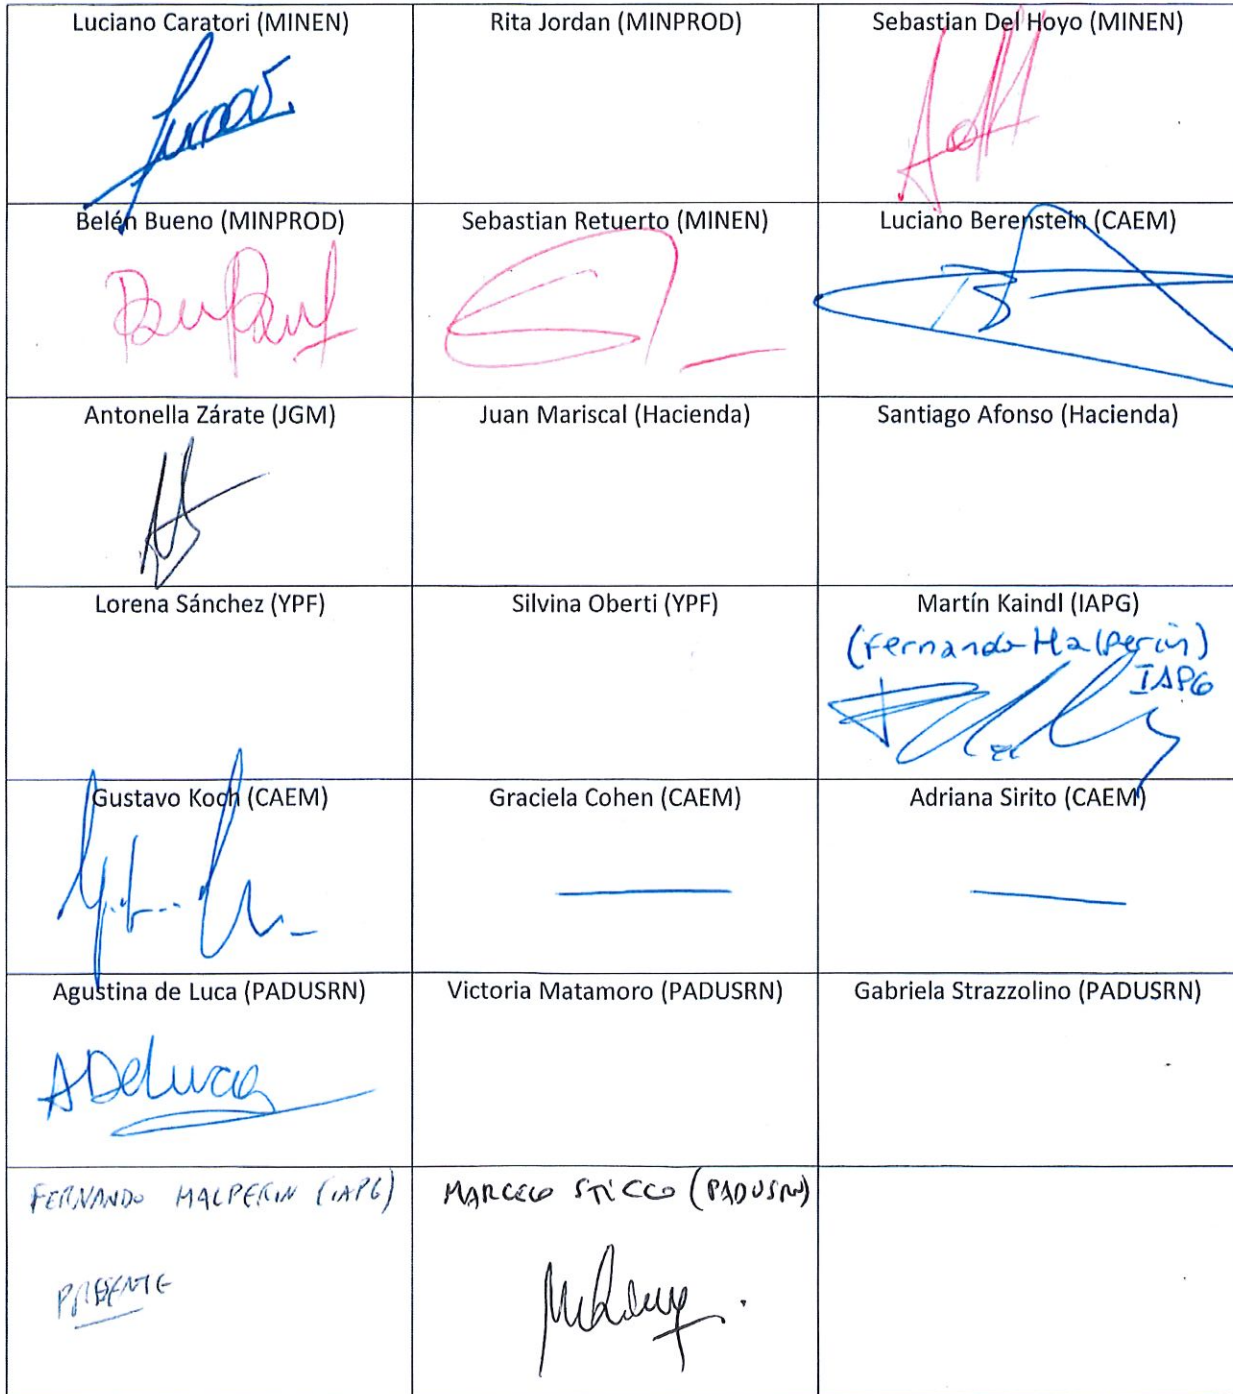 Luciano Caratori (MINEN)
Rita Jordan (MINPROD)
Sebastian Del Hoyo (MINEN)
Belén Bueno (MINPROD)
Sebastian Retuerto (MINEN)
Luciano Berenstein (CAEM)
Antonella Zárate (JGM)
Juan Mariscal (Hacienda)
Santiago Afonso (Hacienda)
Lorena Sánchez (YPF)
Silvina Oberti (YPF)
Martín Kaindl (IAPG)
(Fernando Halperin)
IAPG
Gustavo Koch (CAEM)
Graciela Cohen (CAEM)
Adriana Sirito (CAEM)
Agustina de Luca (PADUSRN)
Victoria Matamoro (PADUSRN)
Gabriela Strazzolino (PADUSRN)
ADeluca
FERNANDO HALPERIN (IAPG)
MARCELO STICCO (PADUSRN)
PRESENTE